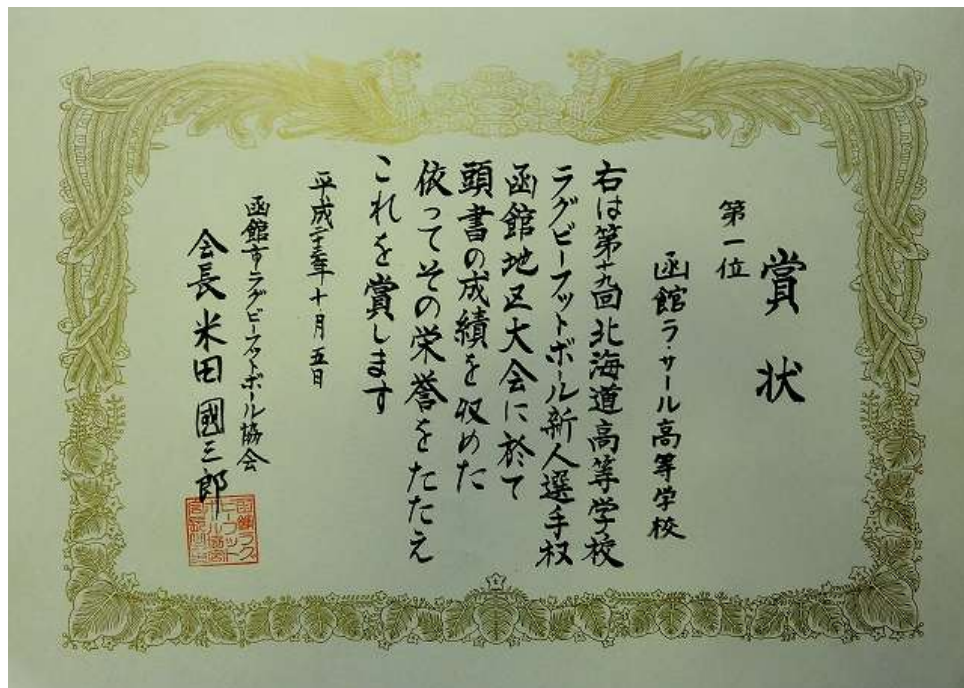 賞状
第一位
函館ラ・サール高等学校
右は第十九回北海道高等学校
ラグビーフットボール新人選手权
函館地区大会に於て
頭書の成績を収めた
依ってその栄誉をたたえ
これを賞します
平成二十三年十月五日
函館市ラグビーフットボール協会
会長 米田國三郎
函館ラグ
ビーフット
ボール協会